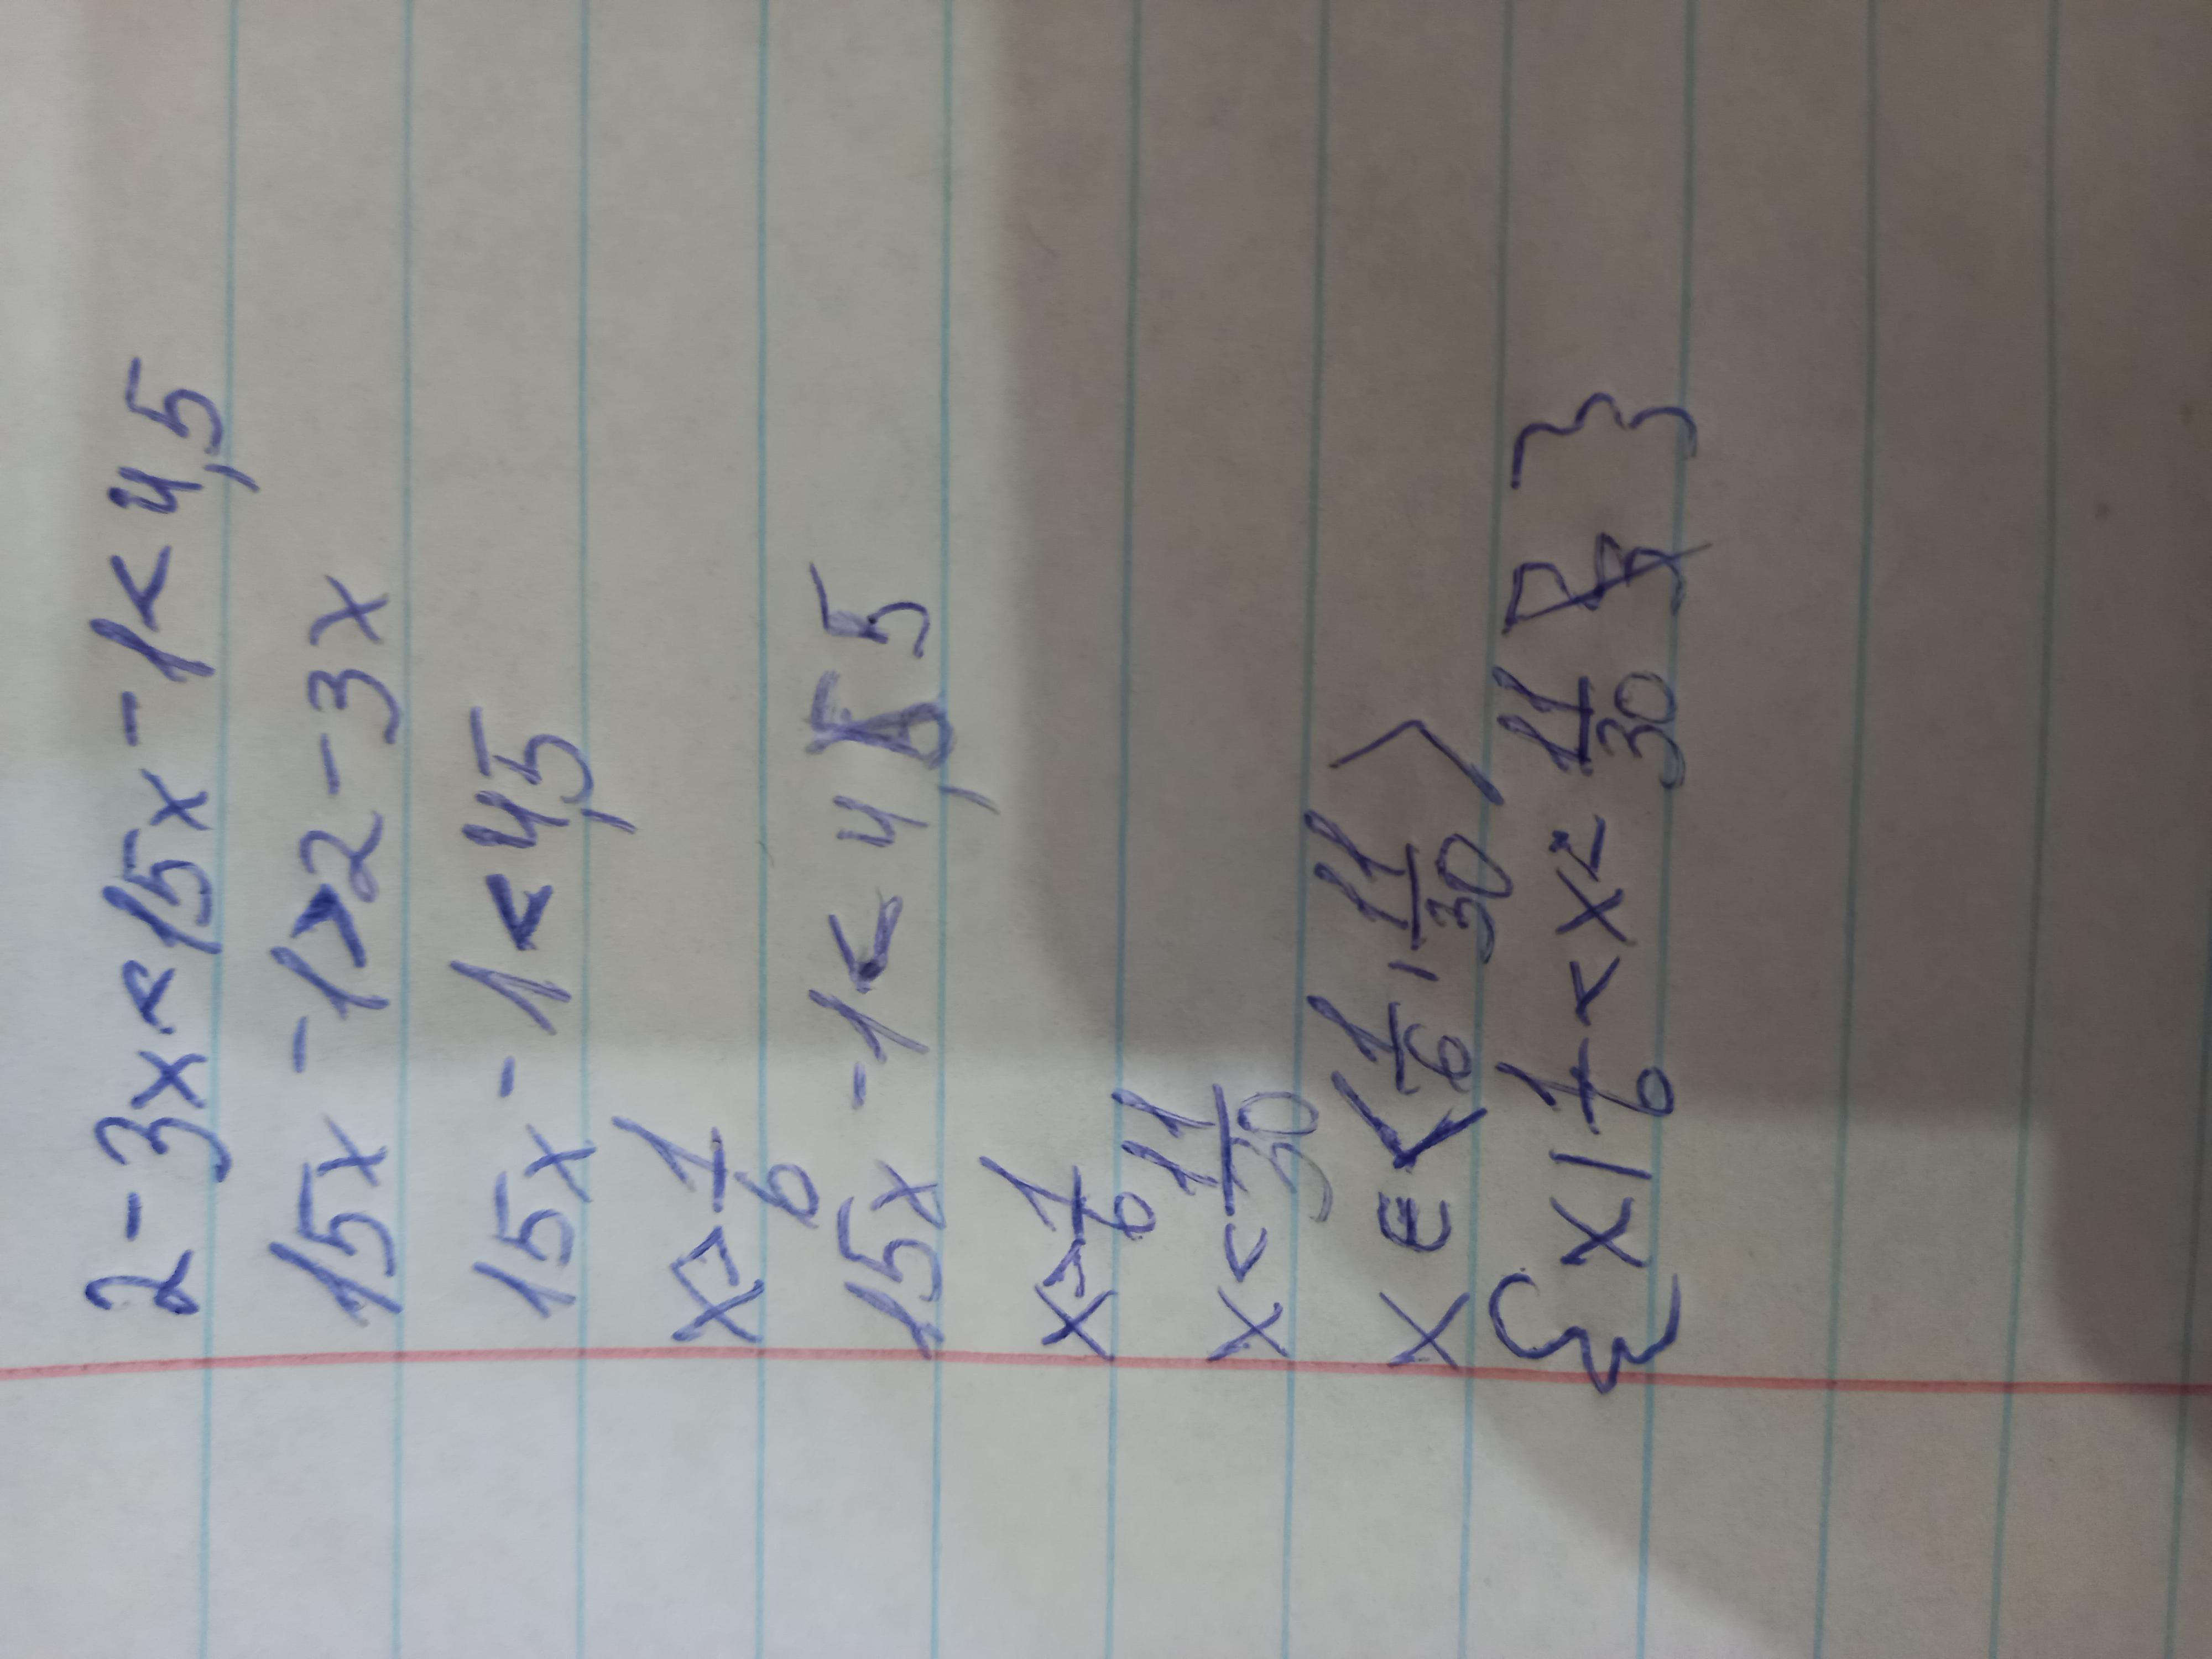 2-3x<15x-1<4,5
15x-1>2-3x
15x-1<4,5
x>1/6
15x-1<4,5
x>1/6
x<11/30
x∈<1/6,11/30>
{x|1/6<x<11/30}